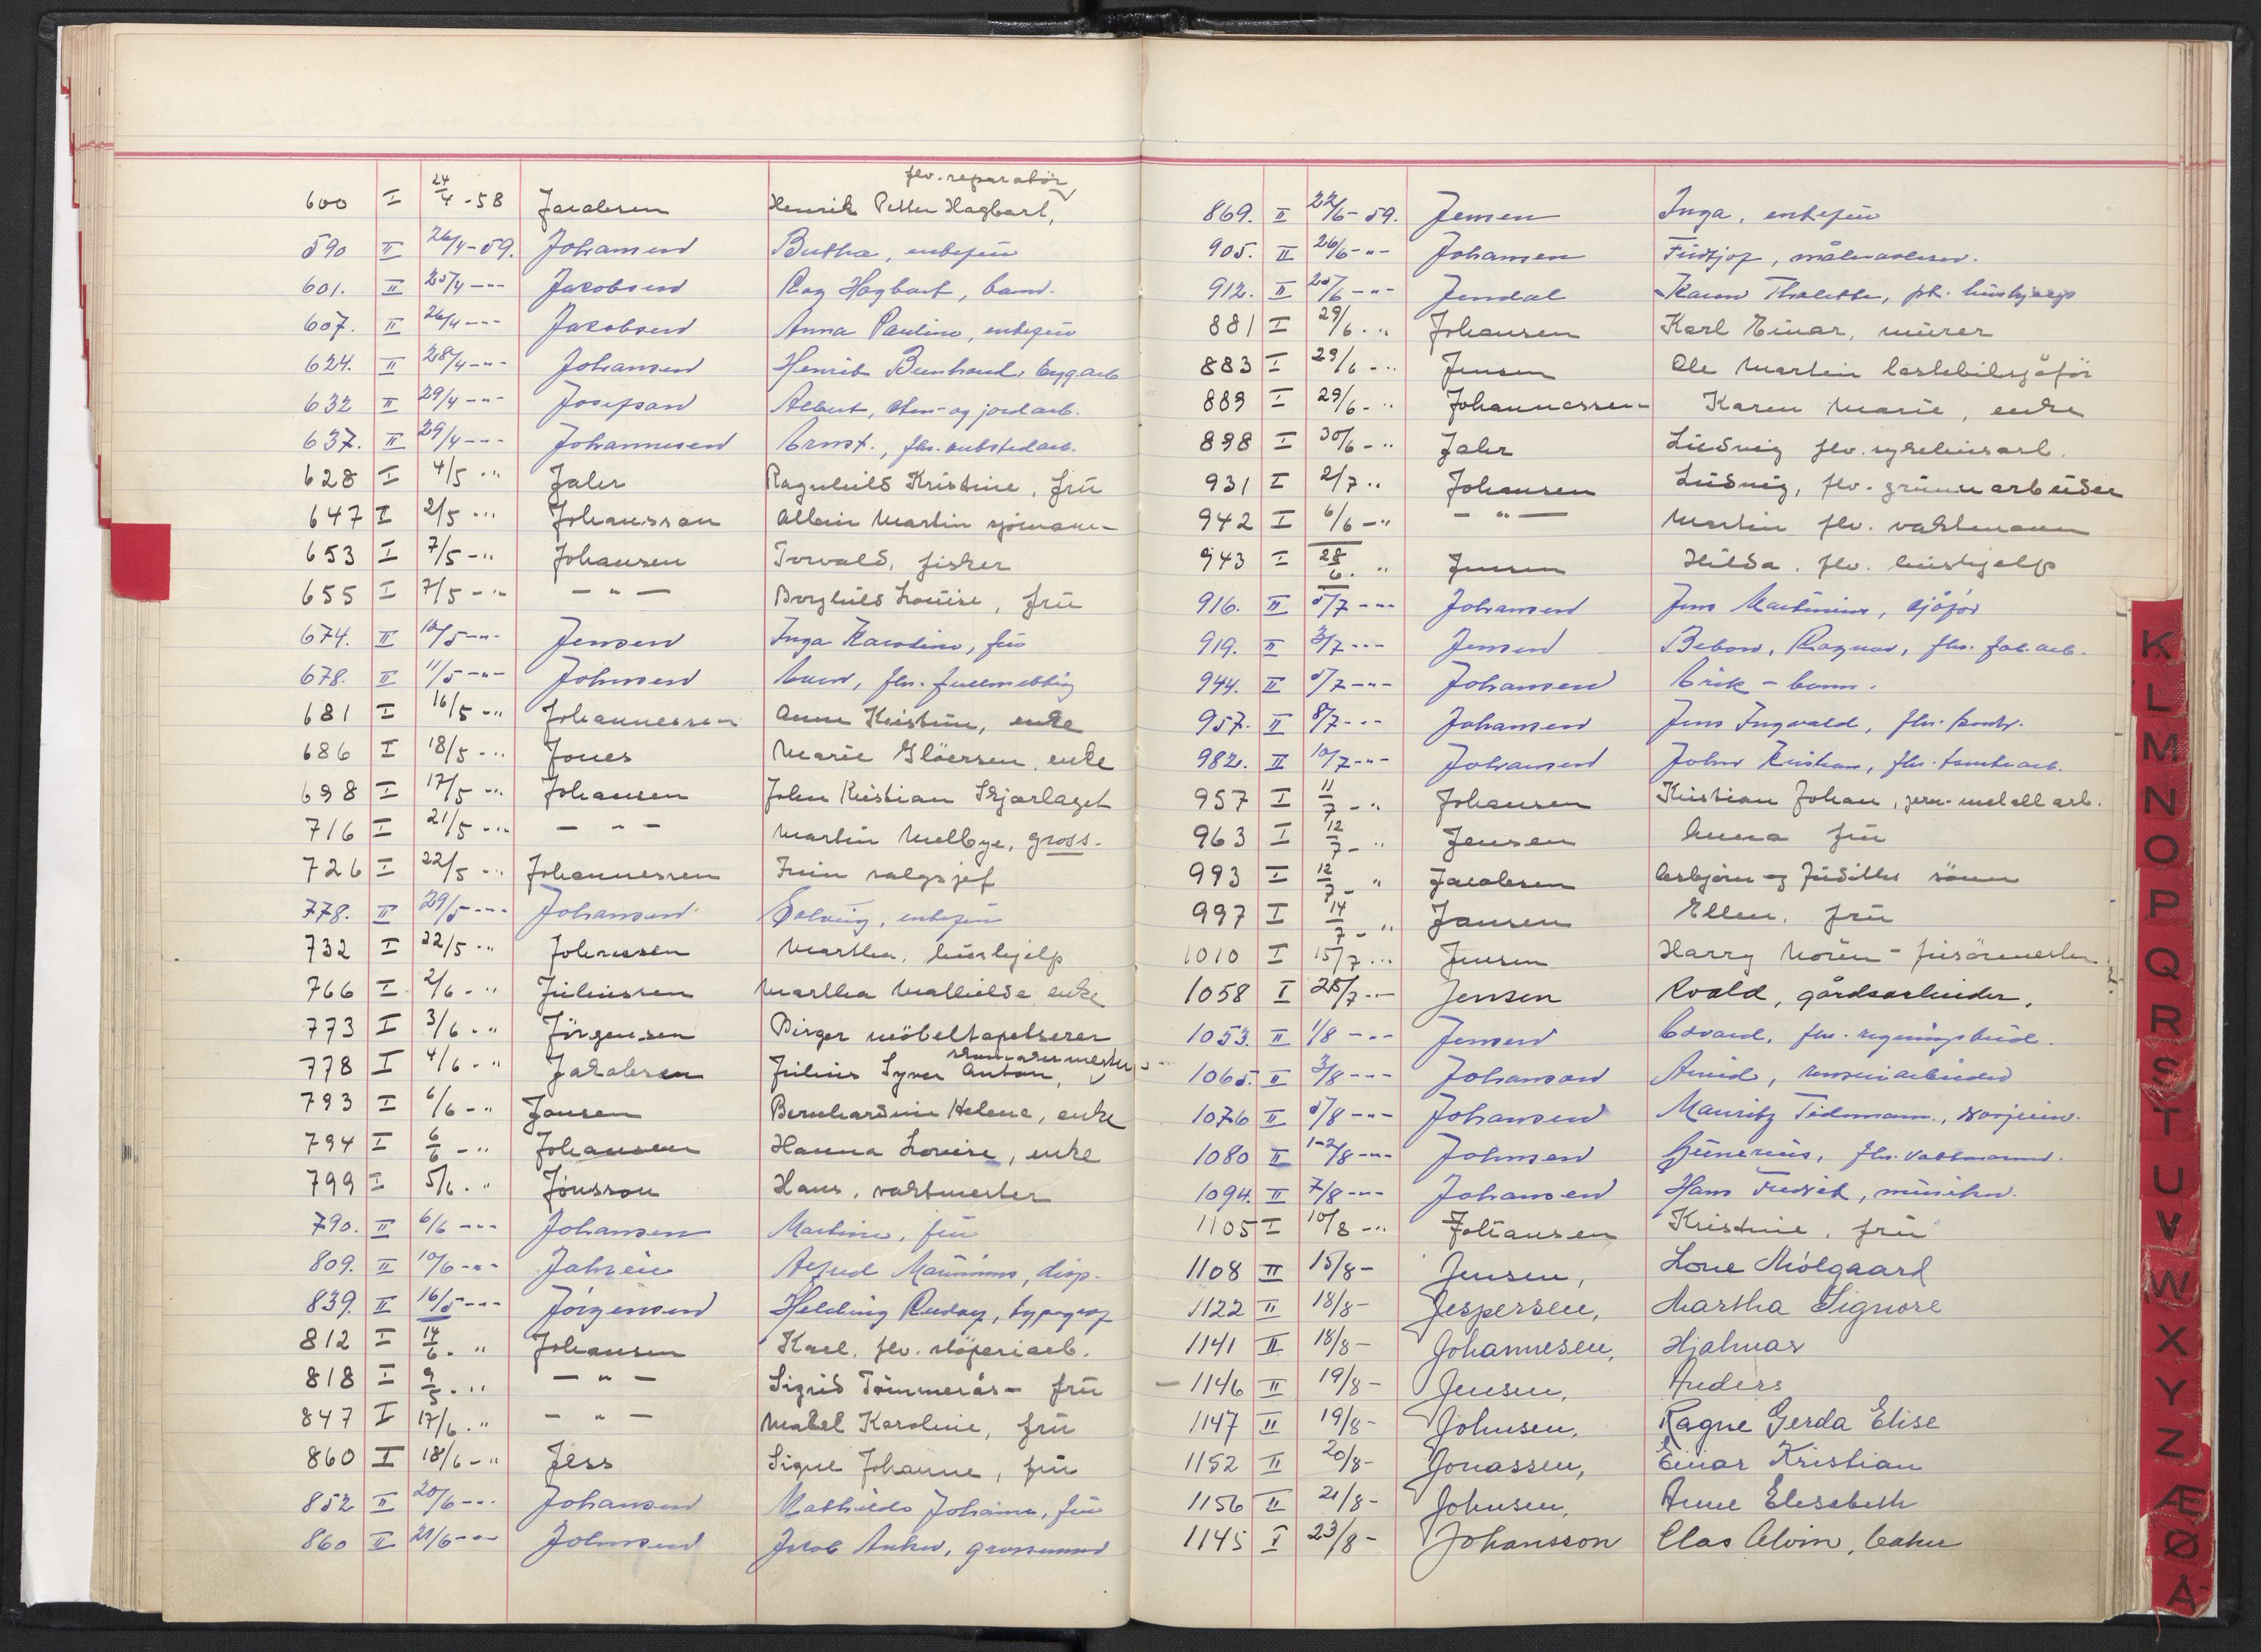 flv. reparatør
600 I 24/4 - 58 Jacobsen Henrik Petter Hagbart,
590 II 26/4 - 59. Johansen Bertha, enkefru
601. II 25/4 - " - Jacobsen Roy Hagbart, barn.
607. II 26/4 - " - Jacobsen Anna Pauline, enkefru
624. II 28/4 - " - Johansen Henrik Bernhard, byggarb
632 II 29/4 - " - Josefsen Albert, sten- og jordarb.
637. II 29/4 - " - Johannesen Ernst, flv.
628 I 4/5 - " Jahr Ragnhild Kristine, frü
647 I 2/5 - " Johansson Albin Martin sjömann
653 I 7/5 - " Johansen Torvald, fisker
655 I 7/5 - " - " - Borghild Louise, frü
674. II 10/5 - " - Jensen Inga Karoline, frü
678. II 11/5 - " - Johnsen flv. fullmektig
681 I 16/5 - " Johannessen Anne Kristine, enke
686 I 18/5 - " Jones Marie Glöersen, enke
698 I 17/5 - " Johansen John Kristian Skjærlaget
716 I 21/5 - " - " - Martin Melbye, gross.
726 I 22/5 - " Johannessen salgsjef
778. II 29/5 - " - Johansen Solveig, enkefru
732 I 22/5 - " Johnssen Martha, hüshjelp
766 I 2/6 - " Juliussen Martha Mathilde enke
773 I 3/6 - " Jörgensen Birger möbeltapetserer
778 I 4/6 - " Jakobsen Julius Syver Anton, skomakermester
793 I 6/6 - " Jansen Bernhardine Helene, enke
794 I 6/6 - " Johansen Hanna Louise, enke
799 I 5/6 - " Jönsson Hans, vaktmester
790. II 6/6 - " - Johansen Martine, frü
809. II 10/6 - " - Jahren Alfred Maurinus, disp.
839. II 16/5 - " - Jörgensen Helding Rudolf, typograf
812 I 14/6 - " Johansen Karl, flv. slöjferiarb.
818 I 9/5 - " - " - Sigrid Tömmerås - frü
847 I 17/6 - " - " - Mabel Karoline, frü
860 I 18/6 - " Jess Signe Johanne, frü
852 II 20/6 - " - Johansen Mathilde Johanne, frü
860 II 21/6 - " - Johnsen Jacob Anker, grossmann
869. II 22/6 - 59. Jensen Inga, enkefru
905. II 26/6 - " - Johansen Fridtjof,
912. II 25/6 - " - Jendal Karen Thalette, hüshjelp
881 I 29/6 - " Johansen Karl Einar, mürer
883 I 29/6 - " Jensen Ole Martin lastebilsjåför
889 I 29/6 - " Johannessen Karen Marie, enke
898 I 30/6 - " Jahr Ludvig flv. sykehusarb.
931 I 2/7 - " Johansen Ludvig, flv. grüvearbeider
942 I 6/6 - " - " - Martin flv. vaktmann
943 I 28/6. " Jensen Hilda, flv. hüshjelp
916. II 5/7 - " - Johansen Jens Martinius, sjåfør
919. II 3/7 - " - Jensen Ragnar, flv. fab.arb.
944. II 5/7 - " - Johansen Erik - barn.
957. II 8/7 - " - Johansen Jens Ingvald, flv. kontr.
982. II 10/7 - " - Johansen John Kristian, flv.
957 I 11/7 - " Johansen Kristian Johan, jern-metallarb.
963 I 12/7 - " Jensen Anna frü
993 I 12/7 - " Jacobsen Asbjörn og Judiths sönn
997 I 14/7 - " Jansen Ellen, frü
1010 I 15/7 - " Jensen Harry Morün - frisörmester
1058 I 25/7 - " Jensen Roald, gårdsarbeider.
1053. II 1/8 - " - Jensen Edvard, flv. regningsbud.
1065. II 3/8 - " - Johansen Arvid,
1076 II 5/8 - " - Johansen Mauritz Tidemann,
1080 II 1-2/8 - " - Johnsen Gunerius, flv. vaktmann.
1094. II 7/8 - " - Johansen Hans Fredrik, musiker.
1105 I 10/8 - " Johansen Kristine, frü
1108 II 15/8 - Jensen, Lone Mölgaard
1122 II 18/8 - Jespersen, Martha Signore
1141 II 18/8 - Johannesen, Hjalmar
- 1146 II 19/8 - Jensen, Anders
1147 II 19/8 - Johnsen, Ragne Gerda Elise
1152 II 20/8 - Jonassen, Einar Kristian
1156 II 21/8 - Johnsen, Anne Elisabeth
1145 I 23/8 - Johansson Clas Alvin,
K
L
M
N
O
P
Q
R
S
T
U
V
W
X
Y
Z
Æ
Ø
Å